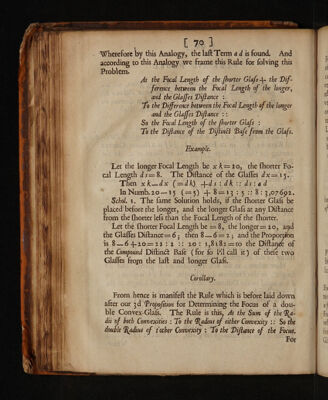 [ 70 ]
Wherefore by this Analogy, the last Term a d is found. And
according to this Analogy we frame this Rule for solving this
Problem.
As the Focal Length of the shorter Glass + the Dif-
ference between the Focal Length of the longer,
and the Glasses Distance :
To the Difference between the Focal Length of the longer
and the Glasses Distance : :
So the Focal Length of the shorter Glass :
To the Distance of the Distinct Base from the Glass.
Example.
Let the longer Focal Length be x k = 20, the shorter Fo-
cal Length d s = 8. The Distance of the Glasses d x = 15.
Then x k — d x ( = d k ) + d s : d k : : d s : a d
In Numb. 20 — 15 ( = 5 ) + 8 = 13 : 5 : : 8 : 3,07692.
Schol. 1. The same Solution holds, if the shorter Glass be
placed before the longer, and the longer Glass at any Distance
from the shorter less than the Focal Length of the shorter.
Let the shorter Focal Length be = 8, the longer = 20, and
the Glasses Distance = 6 ; then 8 — 6 = 2 ; and the Proportion
is 8 — 6 + 20 = 22 : 2 : : 20 : 1,8181 = to the Distance of
the Compound Distinct Base ( for so I'll call it ) of these two
Glasses from the last and longer Glass.
Corollary.
From hence is manifest the Rule which is before laid down
after our 3d Proposition for Determining the Focus of a dou-
ble Convex-Glass. The Rule is this, As the Sum of the Ra-
dii of both Convexities : To the Radius of either Convexity : : So the
double Radius of t'other Convexity : To the Distance of the Focus.
For